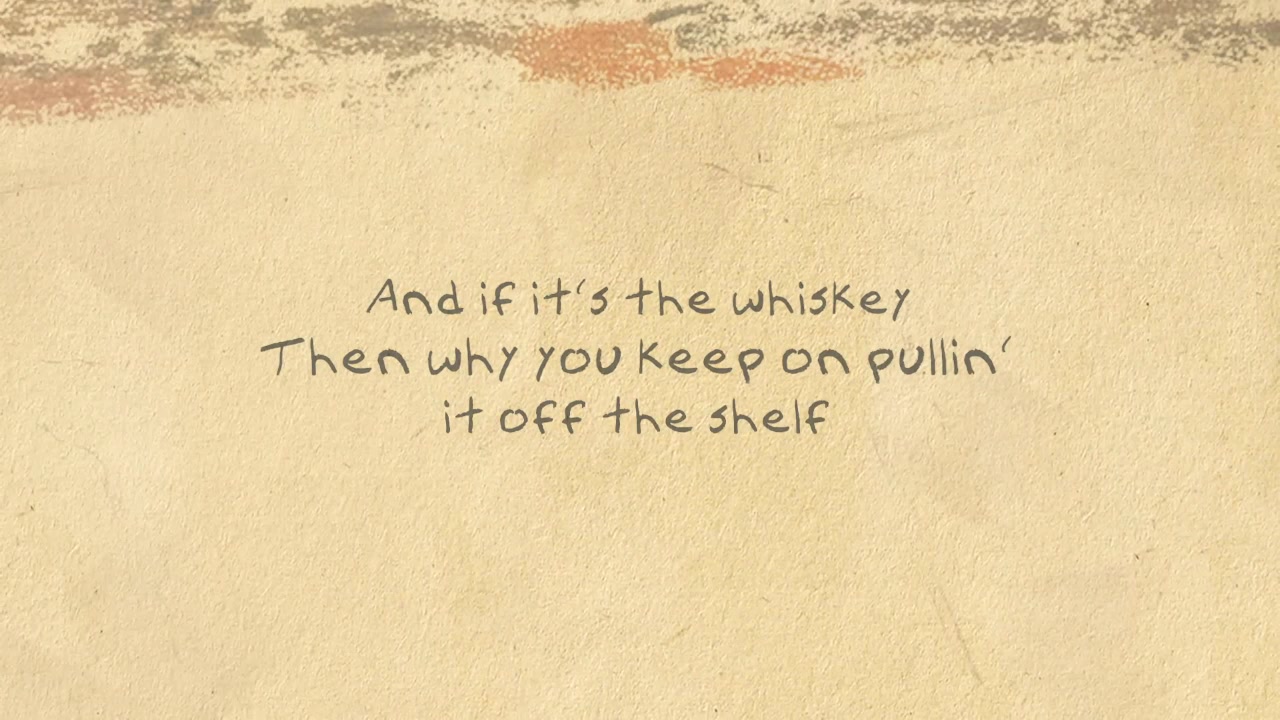 And if it's the whiskey
Then why you keep on pullin'
it off the shelf